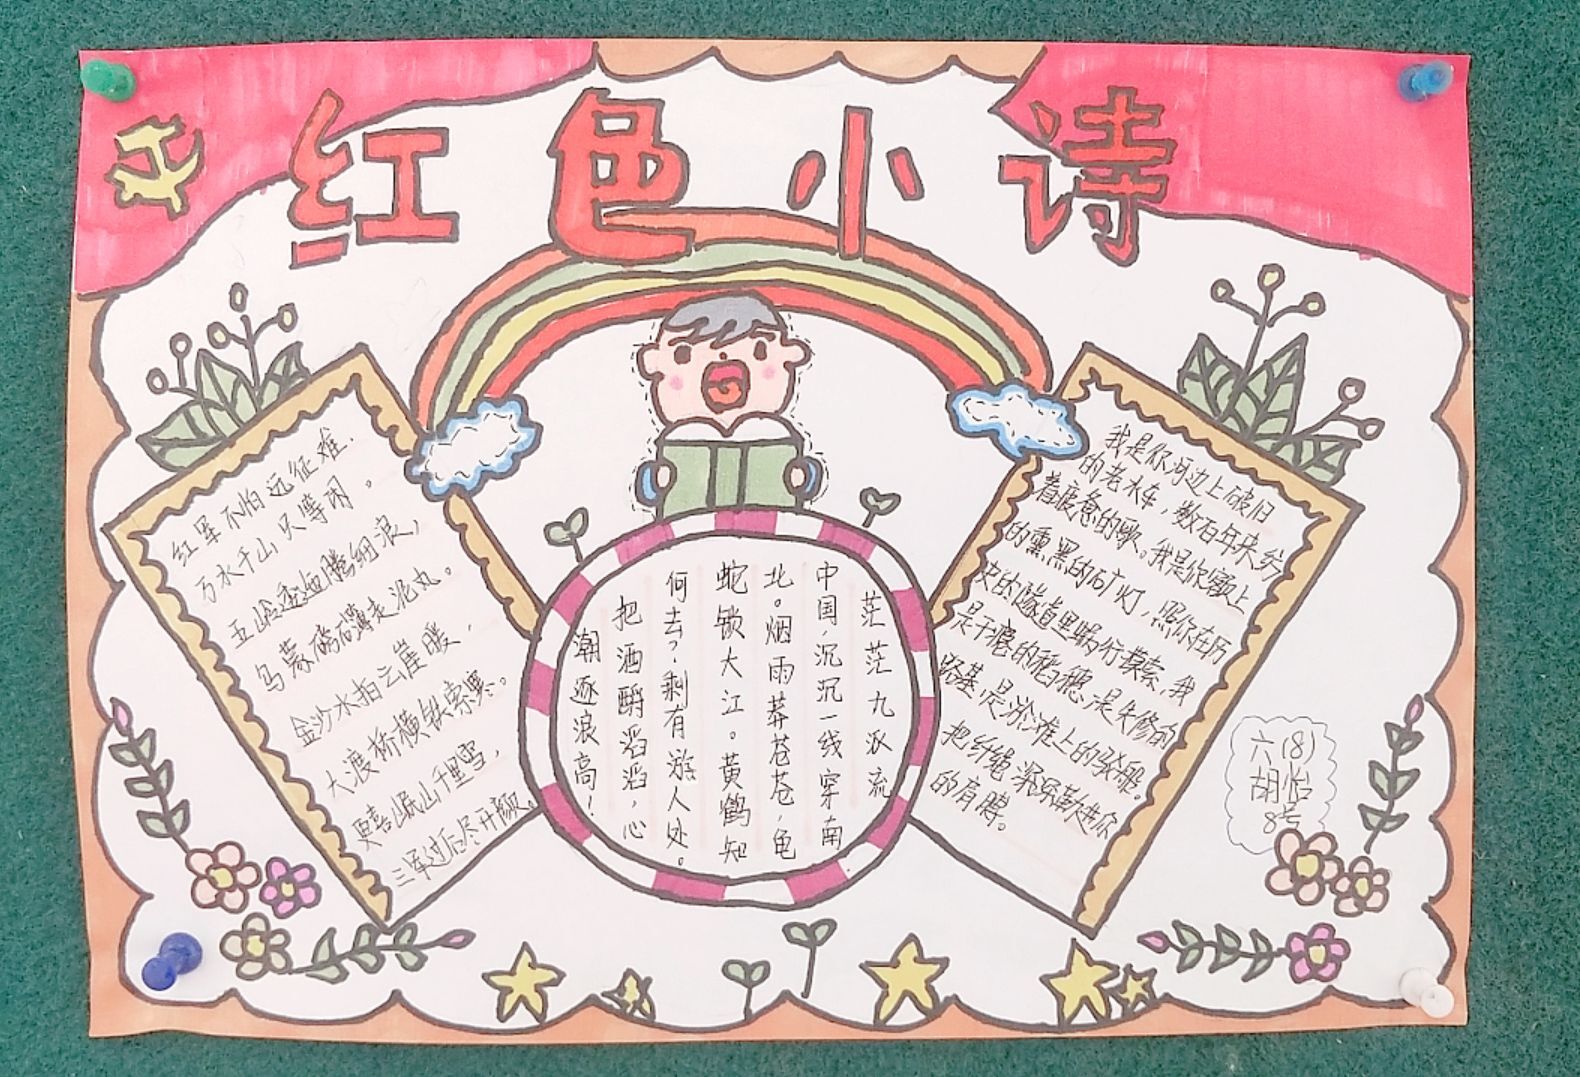 红色小诗
红军不怕远征难.
万水千山只等闲。
五岭逶迤腾细浪,
乌蒙磅礴走泥丸。
金沙水拍云崖暖,
大渡桥横铁索寒。
更喜岷山千里雪,
三军过后尽开颜。
茫茫九派流
中国,沉沉一线穿南
北。烟雨莽苍苍,龟
蛇锁大江。黄鹤知
何去?剩有游人处。
把酒酹滔滔,心
潮逐浪高!
我是你河边上破旧
的老水车,数百年来纺
着疲惫的歌。我是你额上
的熏黑的矿灯,照你在历
史的隧道里蜗行摸索,我
是干瘪的稻穗,是失修的
路基,是淤滩上的驳船。
把纤绳深深勒进你
的肩膊。
六(8)
胡怡
8号